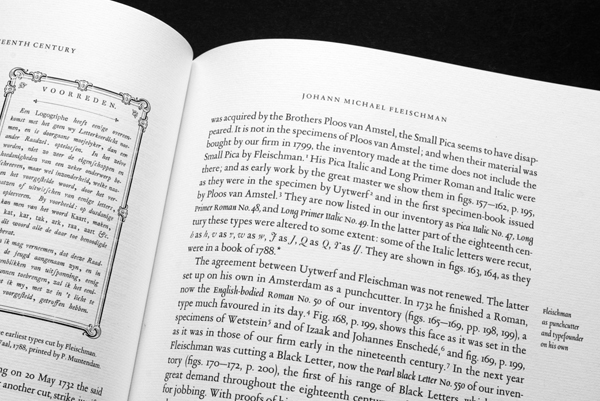 TEENTH CENTURY
VOORREDEN.
Een Logogriphe heeft eenige overeen-
komst met het geen wy Letterkeerdicht noe-
men, en is doorgaans moeijelyker, dan een
ander Raadzel. optelossen. In het zelve
worden, niet zo zeer de eigenschappen en
hoedanigheden van een zeker onderwerp
beschreven, maar wel inzonderheid, welke naa-
men, en woorden
van het voorgestelde woord, door letters
uitwissen van eenige letters
opleveren. By voorbeeld: op dusdanige
kan men van het woord Kaart, maken,
kat, kar, tak, ark, rat, aart &c.
dit woord alle de daar toe benoodigde
ik mag vernemen, dat deze Raad-
de jeugd aangenaam zyn, en in
oogenblikken van uitspanning, eenig
kunnen toebrengen, zal ik het gee-
ik my, met ze in 't licht te
voorgesteld, getroffen hebben.
earliest types cut by Fleischman.
Paal, 1788, printed by P. Muntendam.
ng on 20 May 1732 the said
another cut, strike in
JOHANN MICHAEL FLEISCHMAN
was acquired by the Brothers Ploos van Amstel, the Small Pica seems to have disap-
peared. It is not in the specimens of Ploos van Amstel; and when their material was
bought by our firm in 1799, the inventory made at the time does not include the
Small Pica by Fleischman.¹ His Pica Italic and Long Primer Roman and Italic were
there; and as early work by the great master we show them in figs. 157–162, p. 195,
as they were in the specimen by Uytwerf² and in the first specimen-book issued
by Ploos van Amstel.³ They are now listed in our inventory as Pica Italic No. 47, Long
Primer Roman No. 48, and Long Primer Italic No. 49. In the latter part of the eighteenth cen-
tury these types were altered to some extent: some of the Italic letters were recut,
h as h, v as v, w as w, J as J, Q as Q, T as IJ. They are shown in figs. 163, 164, as they
were in a book of 1788.*
The agreement between Uytwerf and Fleischman was not renewed. The latter
set up on his own in Amsterdam as a punchcutter. In 1732 he finished a Roman,
now the English-bodied Roman No. 50 of our inventory (figs. 165–169, pp. 198, 199), a
type much favoured in its day.⁴ Fig. 168, p. 199, shows this face as it was set in the
specimens of Wetstein⁵ and of Izaak and Johannes Enschedé,⁶ and fig. 169, p. 199,
as it was in those of our firm early in the nineteenth century.⁷ In the next year
Fleischman was cutting a Black Letter, now the Pearl Black Letter No. 550 of our inven-
tory (figs. 170–172, p. 200), the first of his range of Black Letters, which
great demand throughout the eighteenth century
for jobbing. With proofs of his
Fleischman
as punchcutter
and typefounder
on his own